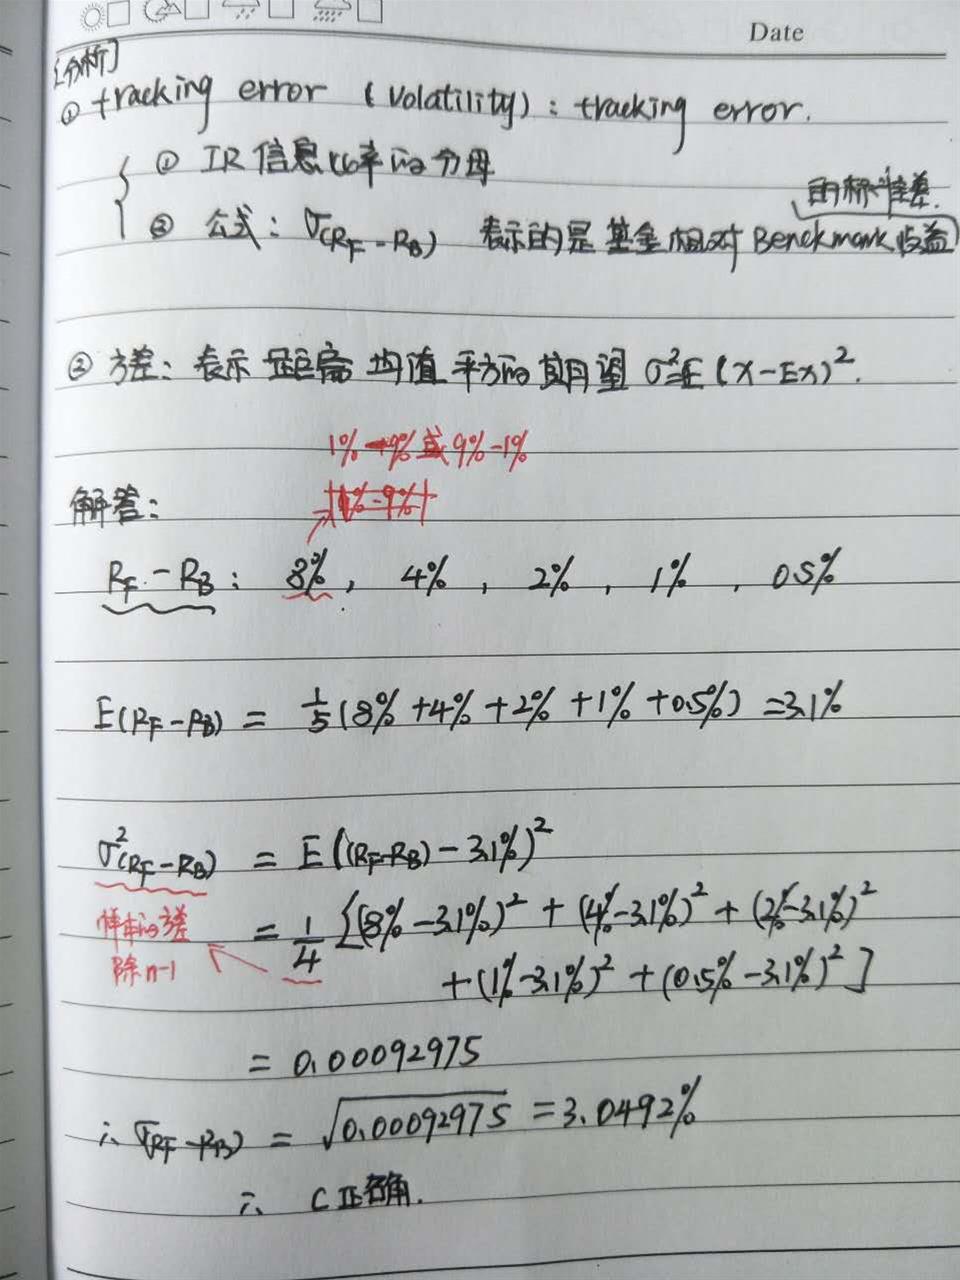 Date
[分析]
① tracking error (Volatility): tracking error.
① IR 信息比率的分母
的标准差.
② 公式: σ(RF-RB) 表示的是基金相对Benckmark收益
② 方差: 表示 距离 均值 平方的 期望 σ²=E(X-EX)².
1% 9% 或 9%-1%
解答:
1%-9%
RF-RB: 8%, 4%, 2%, 1%, 0.5%
E(RF-RB) = 1/5(8%+4%+2%+1%+0.5%) =3.1%
σ²(RF-RB) = E((RF-RB)-3.1%)²
样本的方差
除n-1
= 1/4[(8%-3.1%)²+(4%-3.1%)²+(2%-3.1%)²
+(1%-3.1%)²+(0.5%-3.1%)²]
= 0.00092975
∴ σ(RF-RB) = √0.00092975 = 3.0492%
∴ C正确.